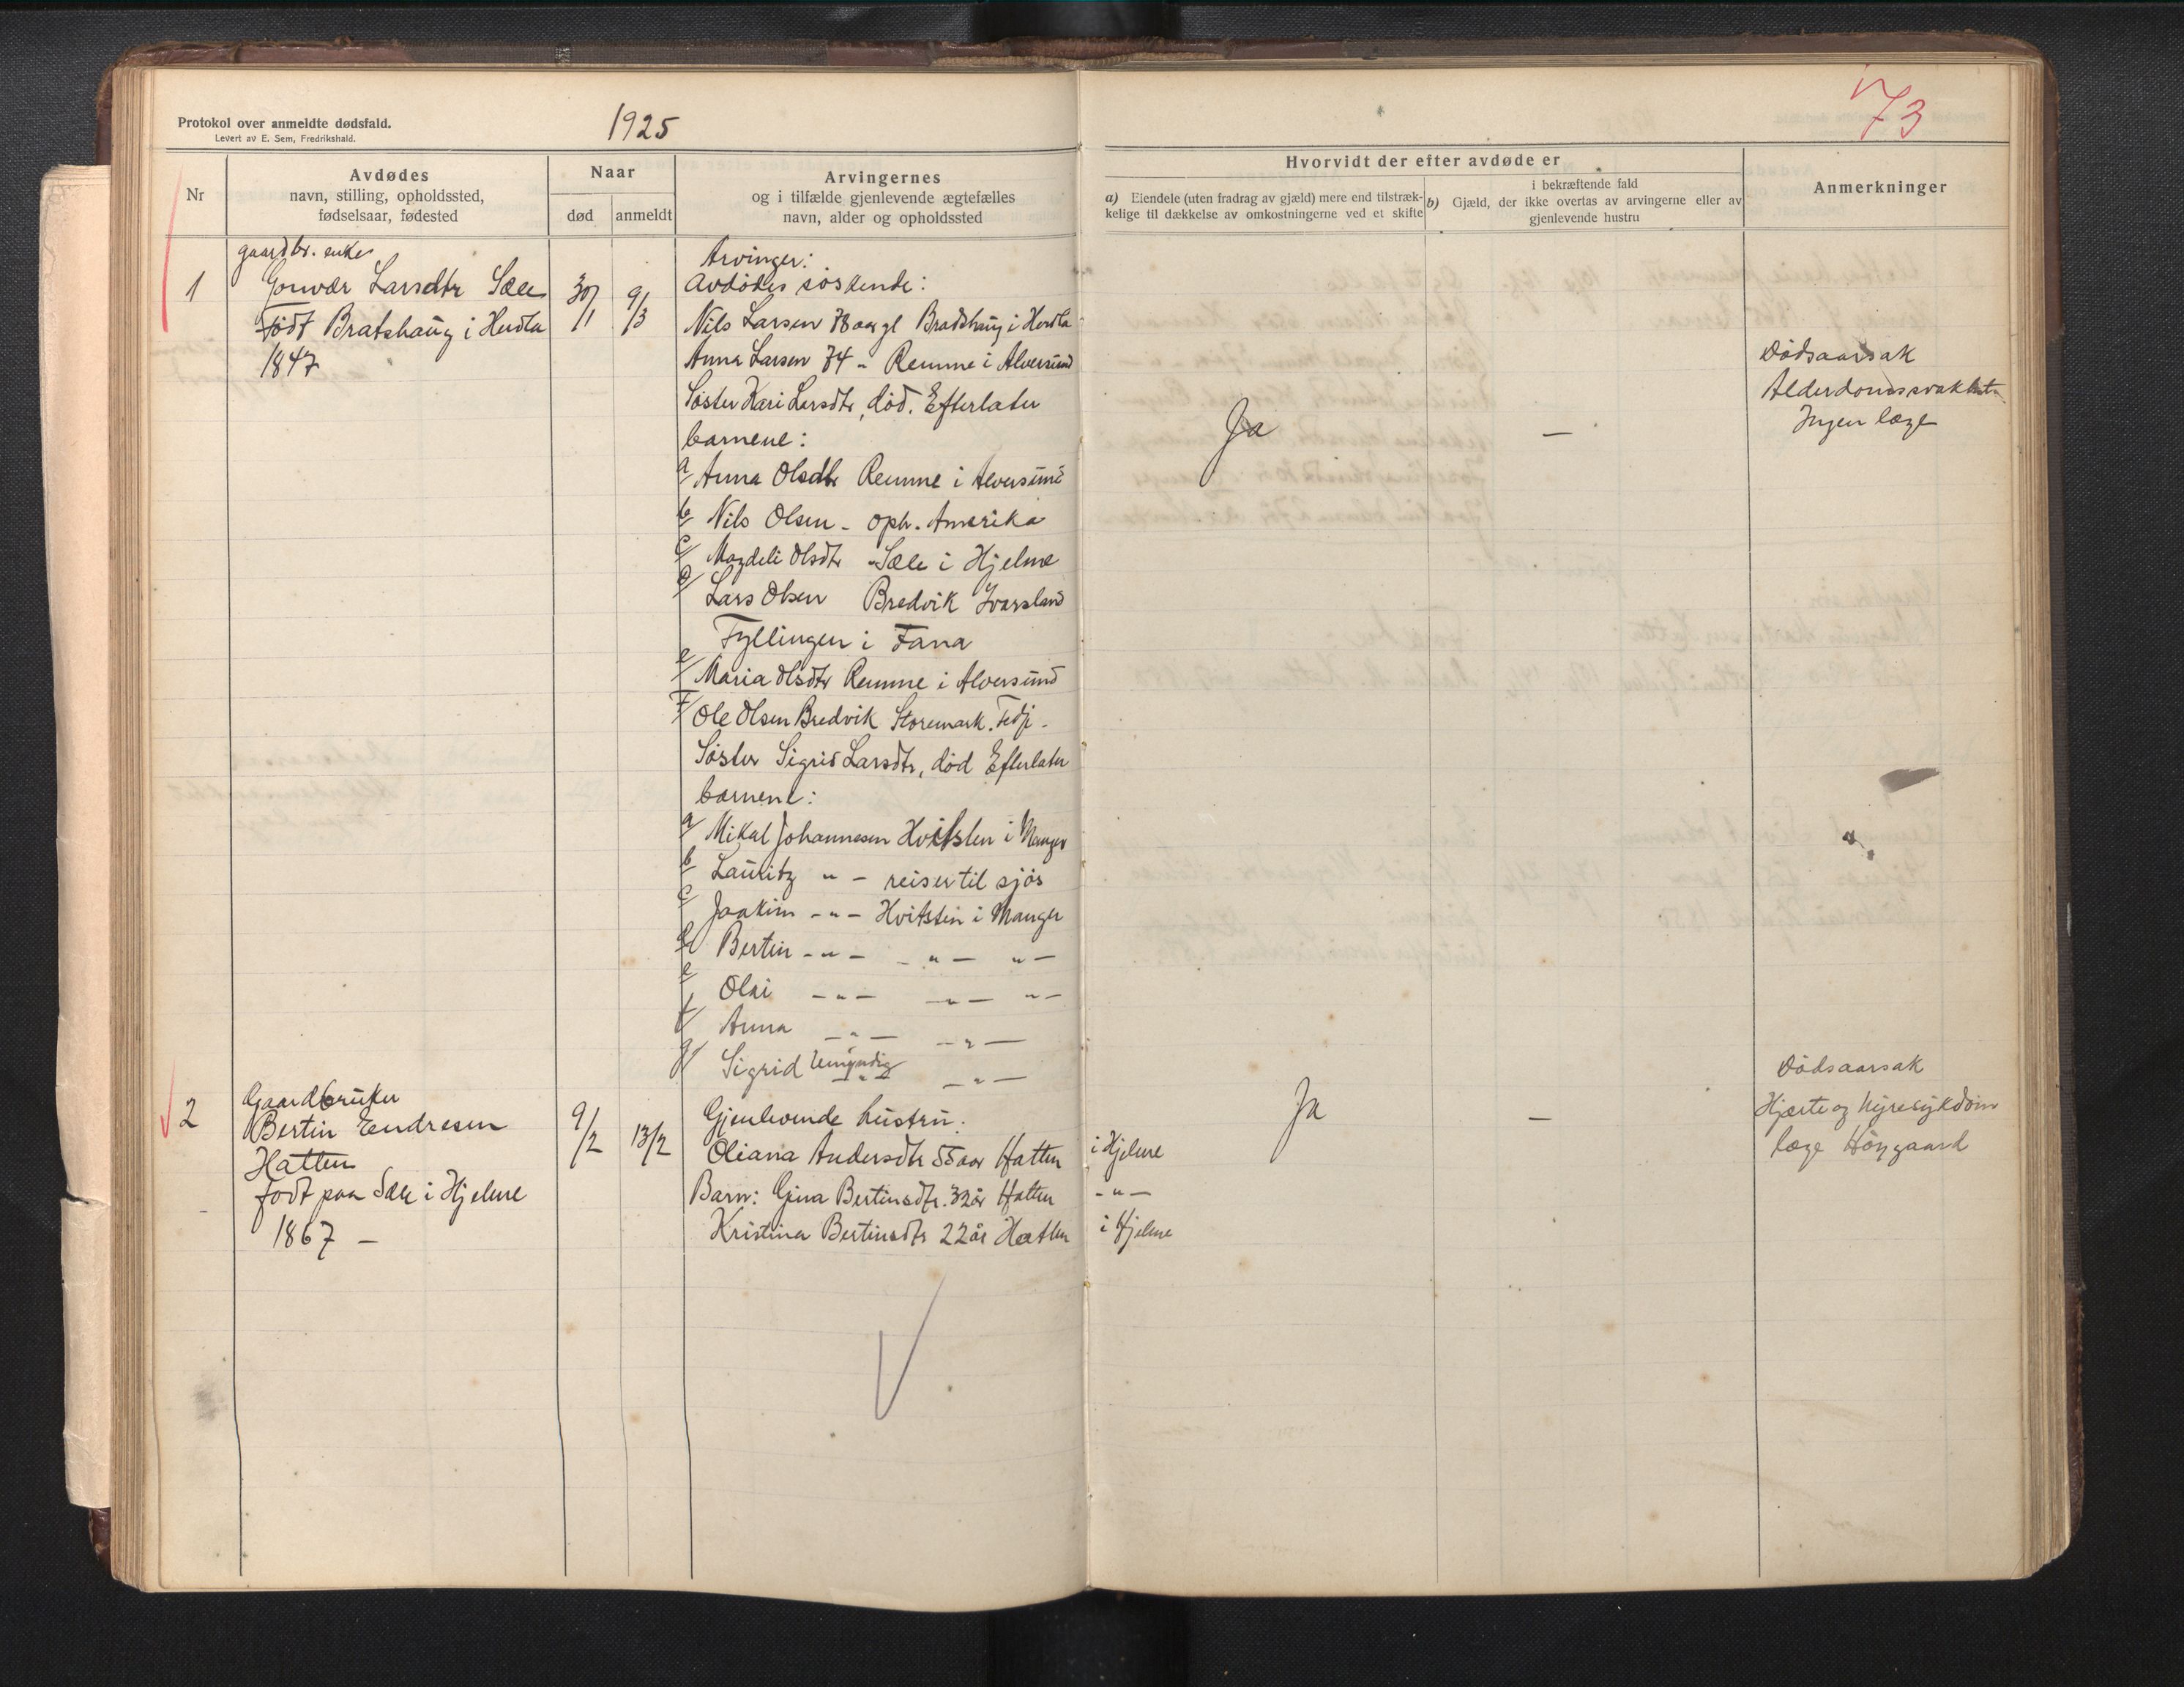 Protokol over anmeldte dødsfald.
Levert av E. Sem, Fredrikshald.
1925
73
Nr
Avdødes
navn, stilling, opholdssted,
fødselsaar, fødested
Naar
død
anmeldt
Arvingernes
og i tilfælde gjenlevende ægtefælles
navn, alder og opholdssted
Hvorvidt der efter avdøde er
a) Eiendele (uten fradrag av gjæld) mere end tilstræk-
kelige til dækkelse av omkostningerne ved et skifte
i bekræftende fald
b) Gjæld, der ikke overtas av arvingerne eller av
gjenlevende hustru
Anmerkninger
gaardbr. enke
1
Gonvær Larsdtr Sæle
Født Bratshaug i Herdla
1847
30/1
9/3
Arvinger:
Avdødes søskende:
Nils Larsen 78 aar gl Bradshaug i Herdla
Anna Larsen 74 " Remme i Alversund
Søster Kari Larsdtr, død. Efterlater
barnene:
a/ Anna Olsdtr Remme i Alversund
b/ Nils Olsen - oph. Amerika
c/ Magdeli Olsdtr Sæle i Hjelme
d/ Lars Olsen Bredvik Ivarsland
Fyllingen i Fana
e/ Maria Olsdtr Remme i Alversund
f/ Ole Olsen Bredvik Storemark. Fedje -
Søster Sigrid Larsdtr, død Efterlater
barnene:
a/ Mikal Johannesen Hvitsten i Manger
b/ Lauritz " - reiser til sjøs
c/ Joakim - " - Hvitsten i Manger
d/ Bertin - " - - " - " -
e/ Olai - " - - " - " -
f/ Anna - " - - " -
g/ Sigrid Umyndig - " - - " -
Ja
—
Dødsaarsak
Alderdomssvakhet
Ingen læge
2
Gaardbruker
Bertin Endresen
Hatten
født paa Sæle i Hjelme
1867 -
9/2
13/2
Gjenlevende hustru:
Oliana Andersdtr 55 aar Hatten i Hjelme
Barn: Gina Bertinsdtr. 32 år Hatten - " -
Kristina Bertinsdtr 22 år Hatten i Hjelme
Ja
—
Dødsaarsak
Hjerte og Nyresykdom
læge Høygaard